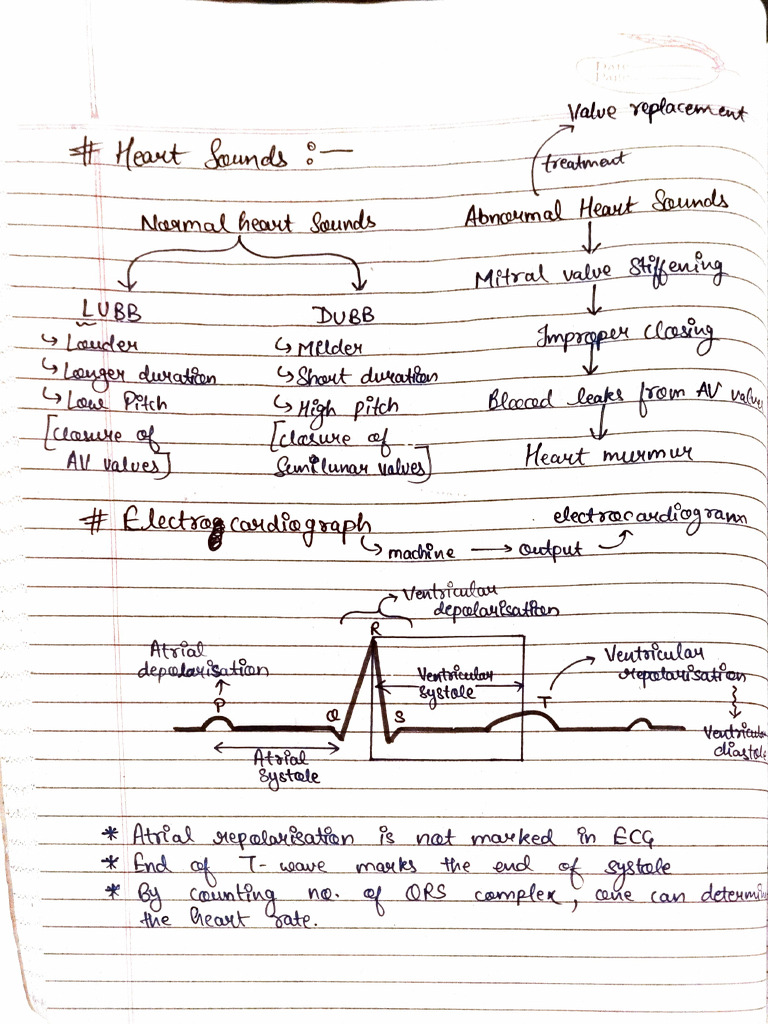 Value replacement
# Heart Sounds :-
treatment
Normal heart Sounds
Abnormal Heart Sounds
LUBB
↳ Louder
↳ Longer duration
↳ Low Pitch
[closure of
AV valves]
DUBB
↳ Milder
↳ Short duration
↳ High pitch
[closure of
Semilunar valves]
Mitral valve stiffening
Improper closing
Blooed leaks from AV valve
Heart murmur
# Electrocardiograph
↳ machine → output
electrocardiogram
Ventricular
depolarisation
Atrial
depolarisation
R
Ventricular
systole
Ventricular
repolarisation
P
Q
S
T
Ventricular
diastole
Atrial
systole
* Atrial repolarisation is not marked in ECG
* End of T-wave marks the end of systole
* By counting no. of QRS complex, one can determin
the heart rate.